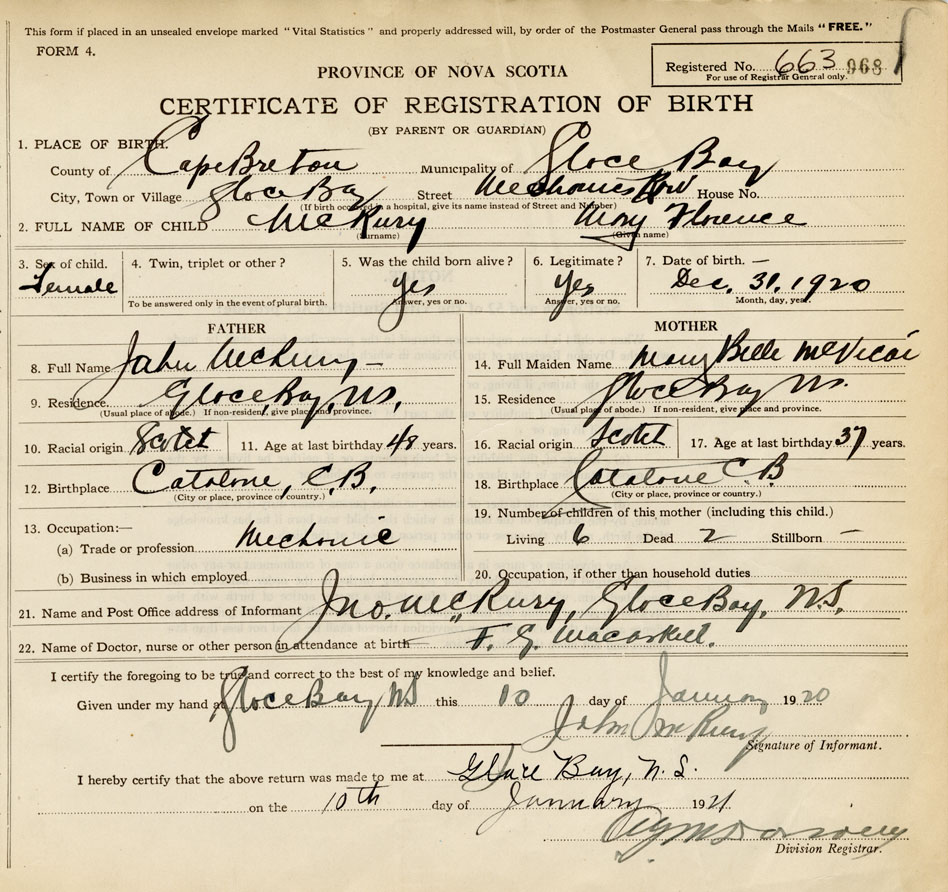 This form if placed in an unsealed envelope marked "Vital Statistics" and properly addressed will, by order of the Postmaster General pass through the Mails "FREE."
FORM 4.
Registered No. 663 968
For use of Registrar General only.
PROVINCE OF NOVA SCOTIA
CERTIFICATE OF REGISTRATION OF BIRTH
(BY PARENT OR GUARDIAN)
1. PLACE OF BIRTH.
County of Cape Breton Municipality of Glace Bay
City, Town or Village Glace Bay Street Mechanics Row House No.
(If birth occurred in a hospital, give its name instead of Street and Number)
2. FULL NAME OF CHILD McKury Mary Florence
(Surname) (Given name)
3. Sex of child. 4. Twin, triplet or other? 5. Was the child born alive? 6. Legitimate? 7. Date of birth. —
Female Yes Yes Dec. 31. 1920
To be answered only in the event of plural birth. Answer, yes or no. Answer, yes or no. Month, day, year.
FATHER
8. Full Name John McKury —
9. Residence Glace Bay, N.S.
(Usual place of abode.) If non-resident, give place and province.
10. Racial origin Scotch 11. Age at last birthday 48 years.
12. Birthplace Catalone, C.B.
(City or place, province or country.)
13. Occupation:—
(a) Trade or profession Mechanic
(b) Business in which employed
MOTHER
14. Full Maiden Name Mary Belle McVicar
15. Residence Glace Bay N.S.
(Usual place of abode.) If non-resident, give place and province.
16. Racial origin Scotch 17. Age at last birthday 37 years.
18. Birthplace Catalone C.B
(City or place, province or country.)
19. Number of children of this mother (including this child.)
Living 6 Dead 2 Stillborn —
20. Occupation, if other than household duties
21. Name and Post Office address of Informant Jno. McKury, Glace Bay, N.S.
22. Name of Doctor, nurse or other person in attendance at birth F. G. MacAskill.
I certify the foregoing to be true and correct to the best of my knowledge and belief.
Given under my hand at Glace Bay NS this 10 day of January 1920
John McKury
Signature of Informant.
I hereby certify that the above return was made to me at Glace Bay, N.S.
on the 10th day of January 1921
Division Registrar.